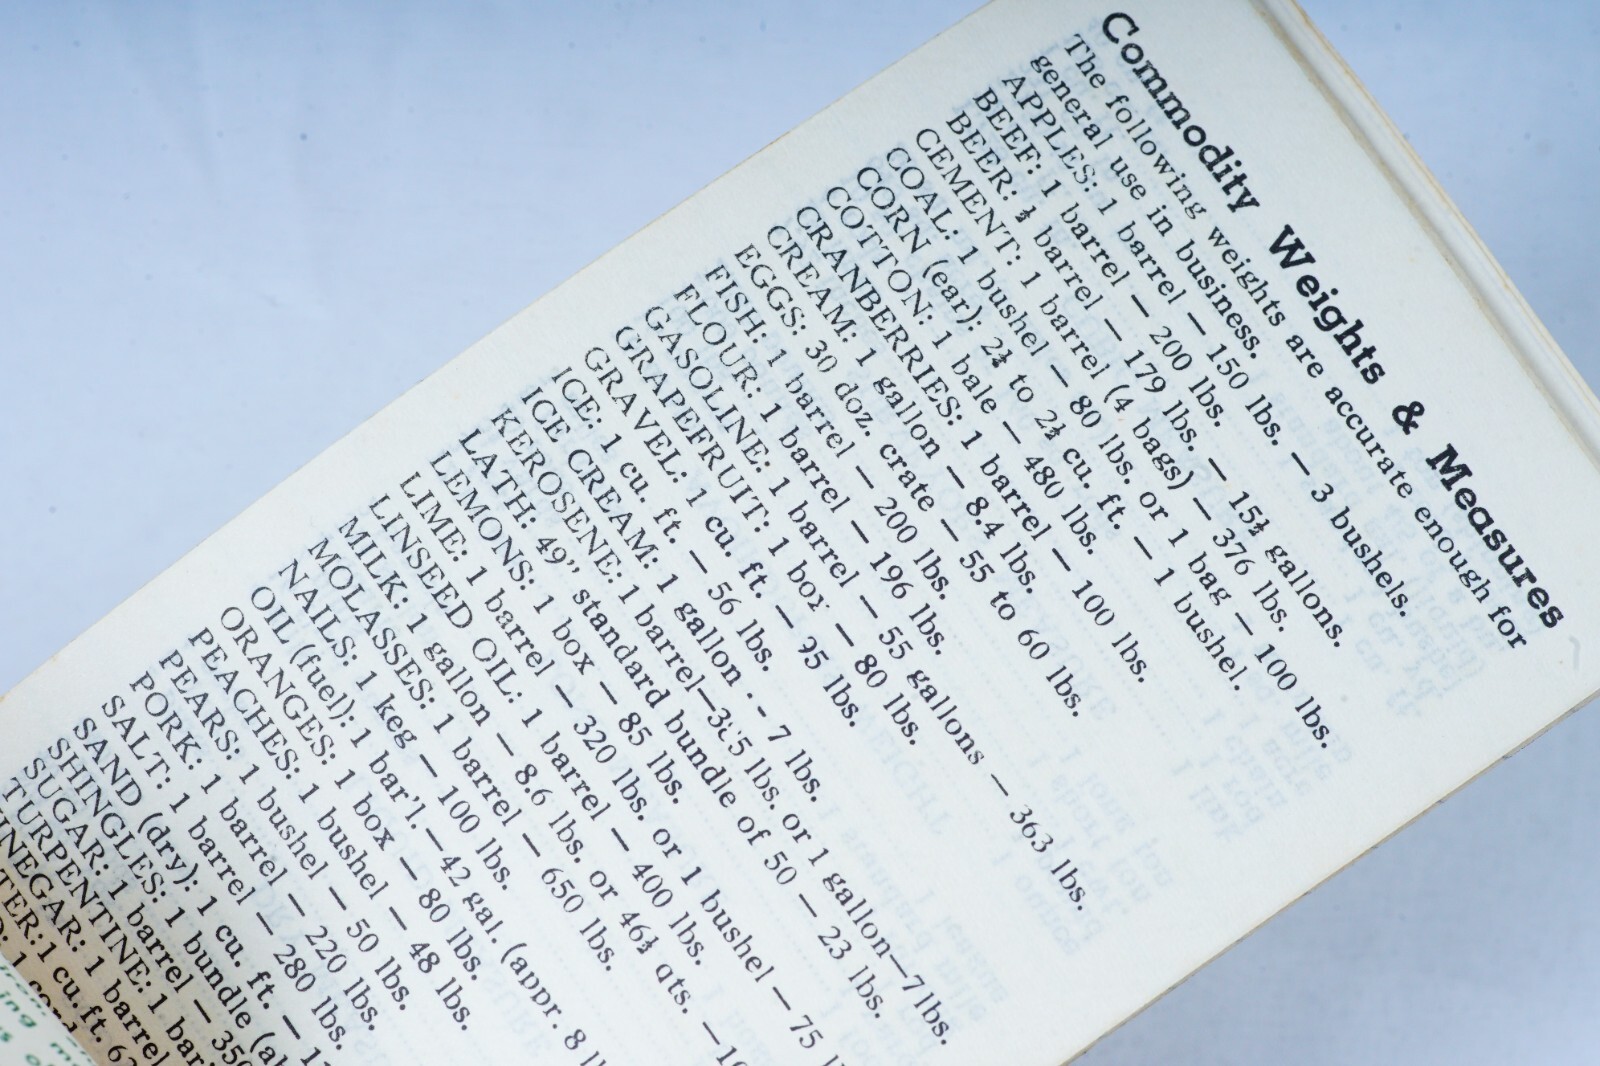 Commodity Weights & Measures
The following weights are accurate enough for
general use in business.
APPLES: 1 barrel — 150 lbs. — 3 bushels.
BEEF: 1 barrel — 200 lbs.
BEER: ½ barrel — 179 lbs. — 15½ gallons.
CEMENT: 1 barrel (4 bags) — 376 lbs.
COAL: 1 bushel — 80 lbs. or 1 bag — 100 lbs.
CORN (ear): 2¼ to 2½ cu. ft. — 1 bushel.
COTTON: 1 bale — 480 lbs.
CRANBERRIES: 1 barrel — 100 lbs.
CREAM: 1 gallon — 8.4 lbs.
EGGS: 30 doz. crate — 55 to 60 lbs.
FISH: 1 barrel — 200 lbs.
FLOUR: 1 barrel — 196 lbs.
GASOLINE: 1 barrel — 55 gallons — 363 lbs.
GRAPEFRUIT: 1 box — 80 lbs.
GRAVEL: 1 cu. ft. — 95 lbs.
ICE: 1 cu. ft. — 56 lbs.
ICE CREAM: 1 gallon - - 7 lbs.
KEROSENE: 1 barrel— lbs. or 1 gallon—7 lbs.
LATH: 49" standard bundle of 50 — 23 lbs.
LEMONS: 1 box — 85 lbs.
LIME: 1 barrel — 320 lbs. or 1 bushel — 75
LINSEED OIL: 1 barrel — 400 lbs.
MILK: 1 gallon — 8.6 lbs. or 46½ qts. —
MOLASSES: 1 barrel — 650 lbs.
NAILS: 1 keg — 100 lbs.
OIL (fuel): 1 bar'l.—42 gal. (appr. 8
ORANGES: 1 box — 80 lbs.
PEACHES: 1 bushel — 48 lbs.
PEARS: 1 bushel — 50 lbs.
PORK: 1 barrel — 220 lbs.
SALT: 1 barrel — 280 lbs.
SAND (dry): 1 cu. ft. —
SHINGLES: 1 bundle
SUGAR: 1 barrel — 35
TURPENTINE: 1
INEGAR: 1 barrel
TER: 1 cu. ft. 62